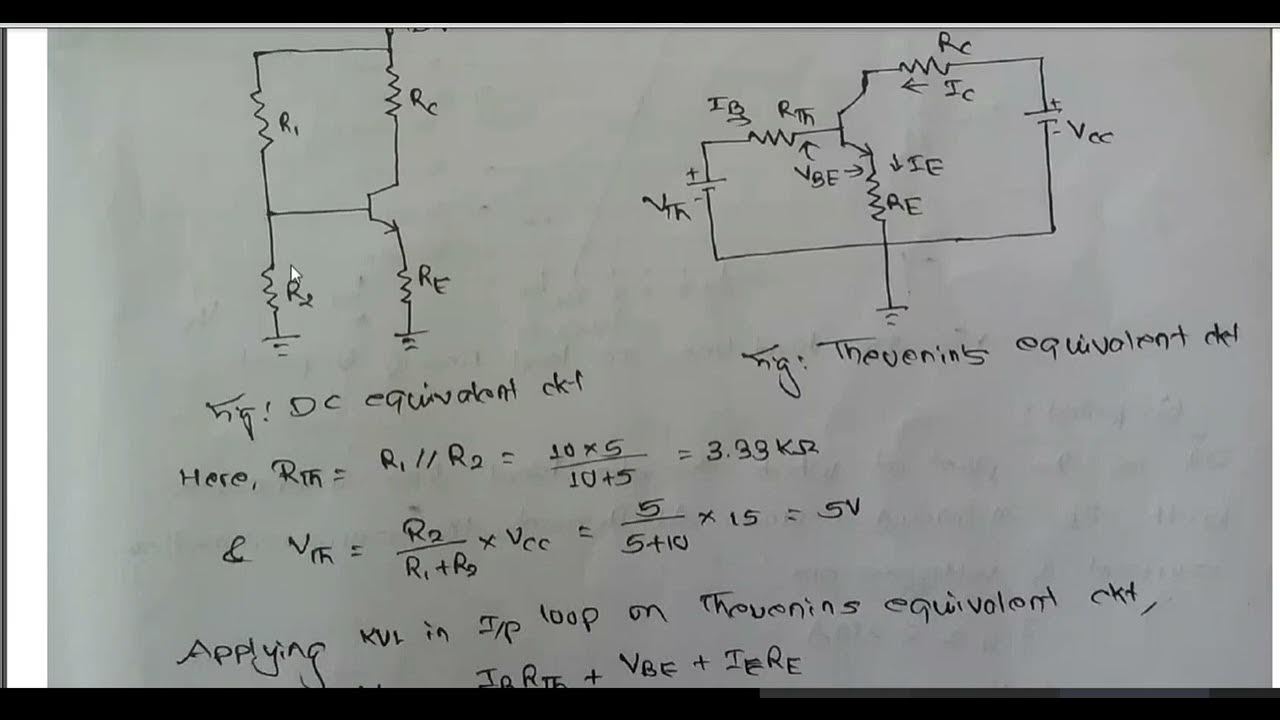 R₁
R₂
R_C
R_E
I_B
R_Th
V_Th
V_BE
I_E
R_E
R_C
I_C
V_CC
+
-
+
-
Fig: DC equivalent ckt
Fig: Thevenin's equivalent ckt
Here, R_Th = R₁ // R₂ = 10 × 5 / 10+5 = 3.33 KΩ
& V_Th = R₂ / R₁+R₂ × V_CC = 5 / 5+10 × 15 = 5V
Applying KVL in I/p loop on Thevenins equivalent ckt,
I_B R_Th + V_BE + I_E R_E